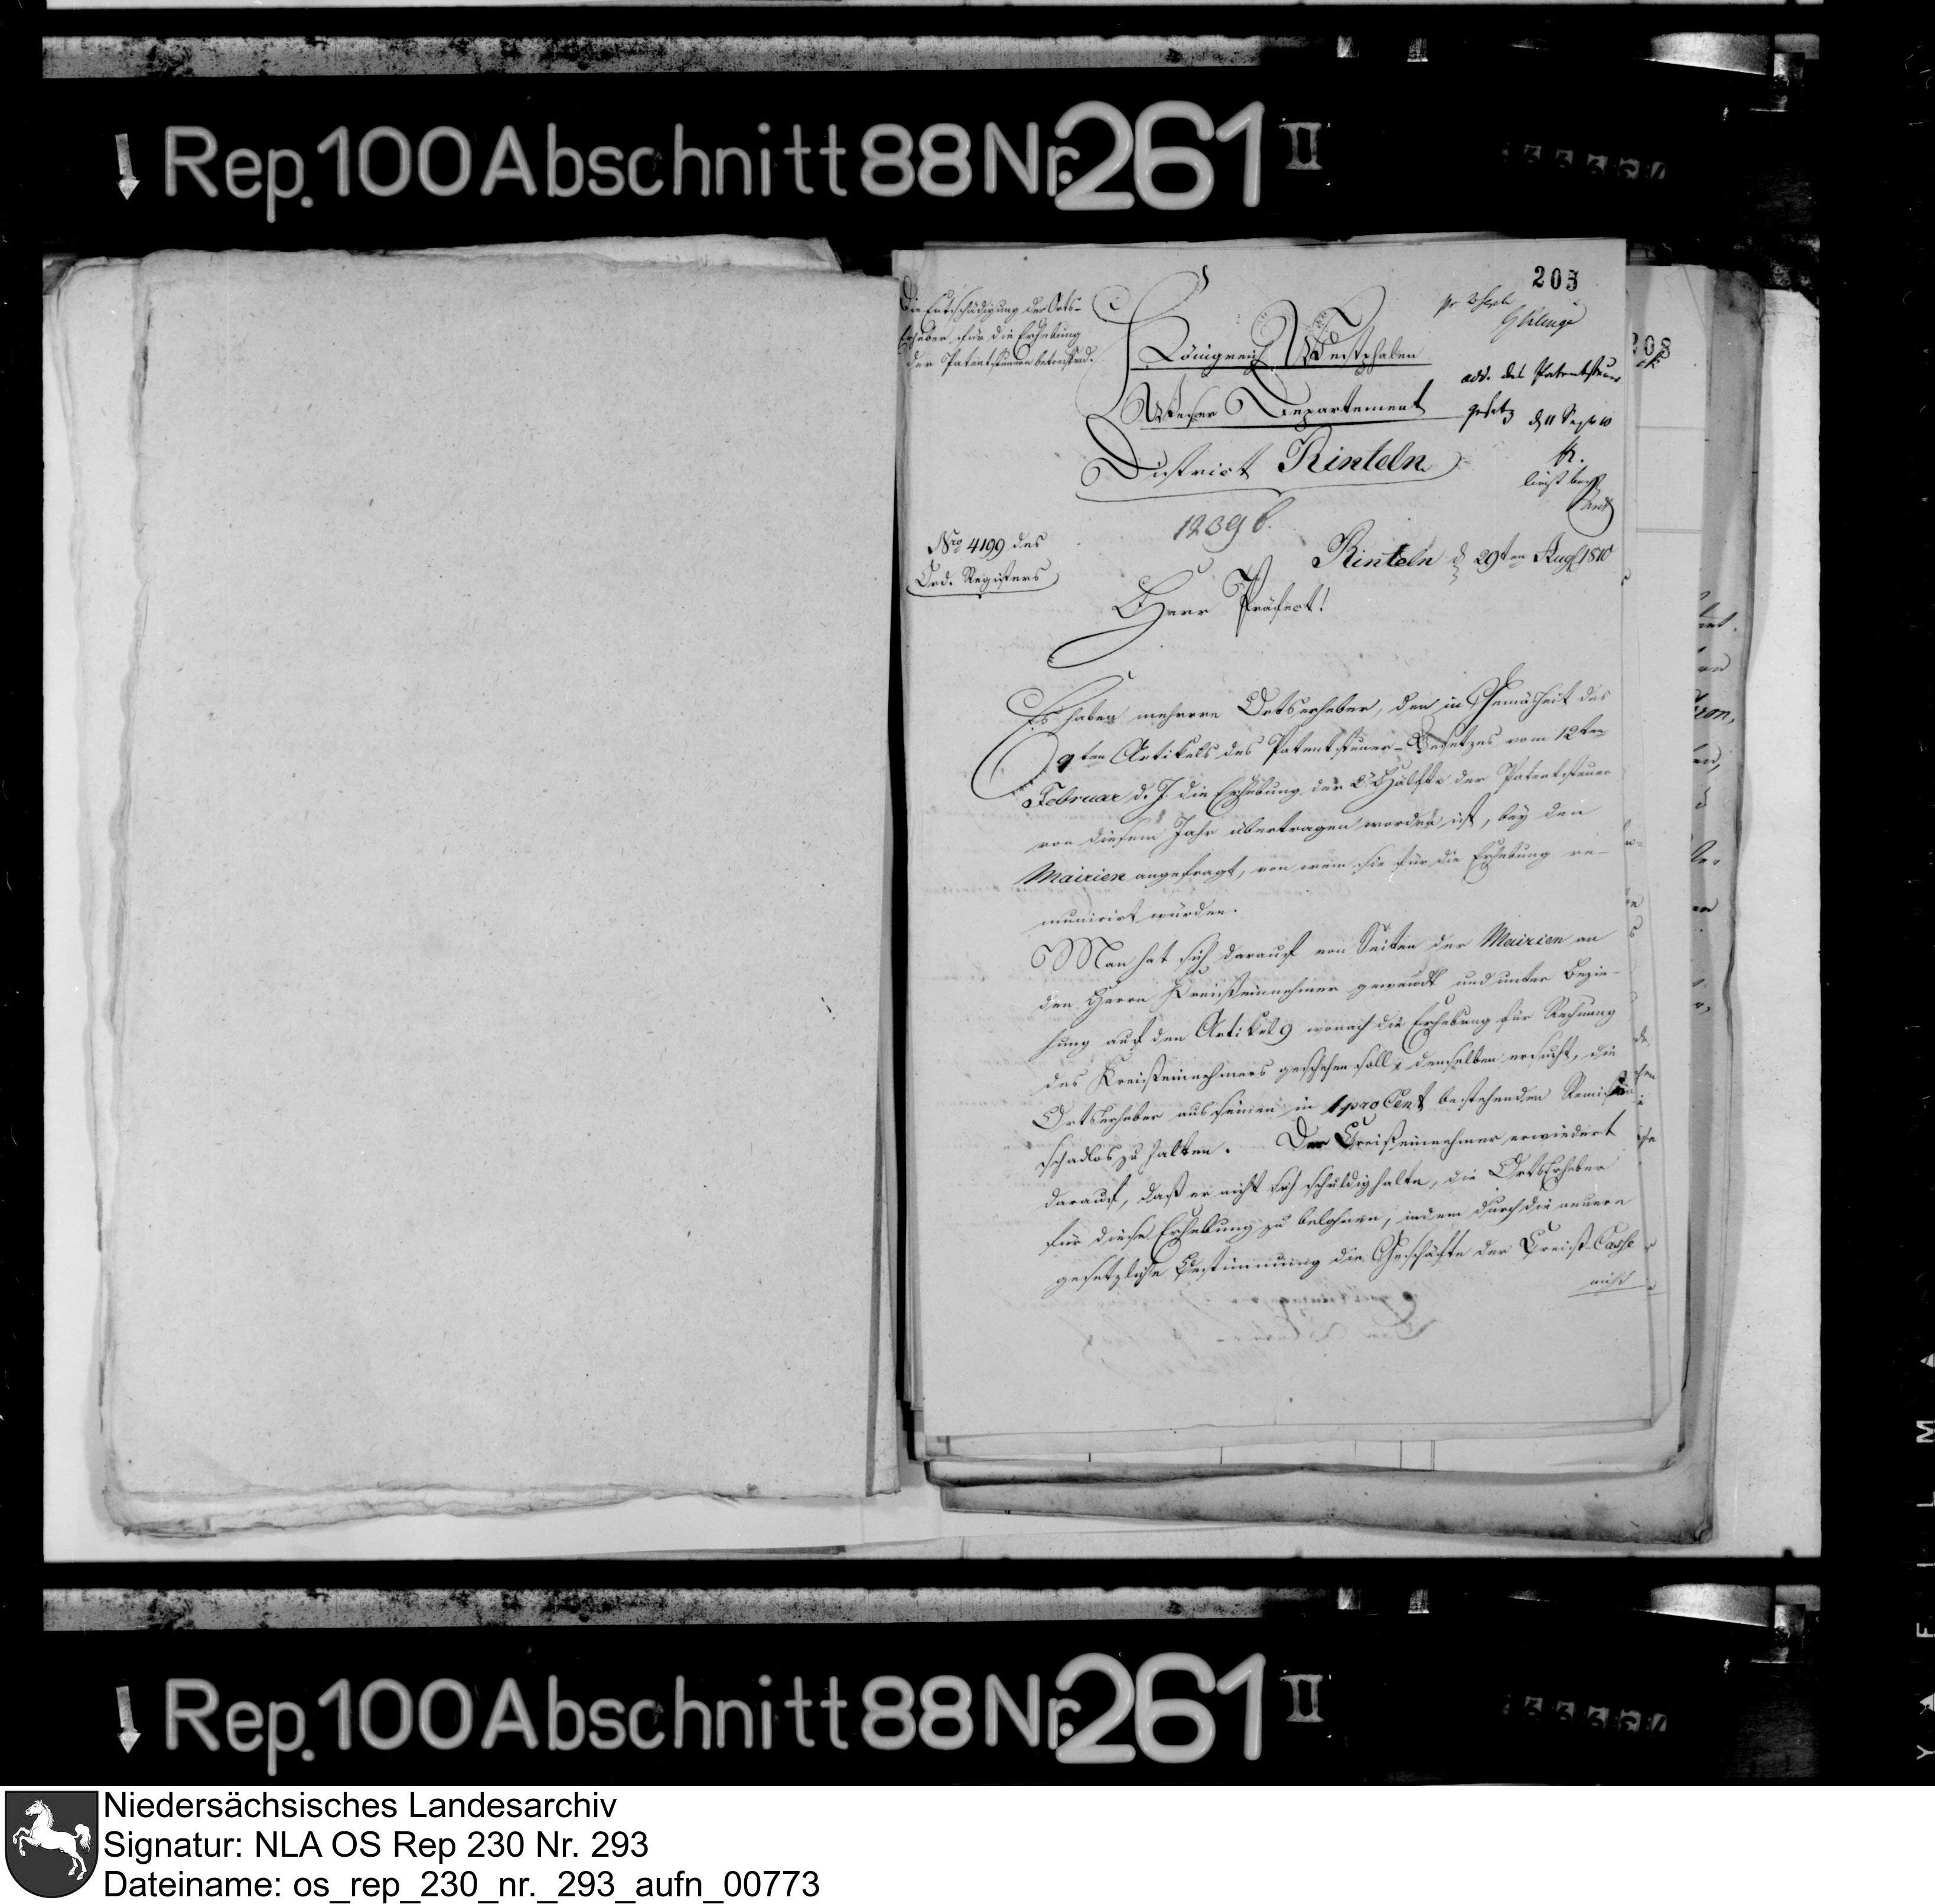 Rep. 100 Abschnitt 88 Nr. 261 II
205
Die Entschädigung der Orts-
Erheber für die Erhebung
der Patentsteuern betreffend.
Königreich Westphalen
Weser Departement
District Rinteln
add. des Patentsteuer
gesetz d 11 Sept 10
208
1239 b.
Nro 4199 des
Ord. Registers
Rinteln d 29ten Aug 1810
Herr Präfect!
Es haben mehrere Ortserheber, den in Gemäsheit des
9ten Artikels des Patentsteuer-Gesetzes vom 12ten
Februar d. J. die Erhebung der Hälfte der Patentsteuer
von diesem Jahr übertragen worden ist, bey den
Mairien angefragt, von wem sie für die Erhebung re-
munerirt würden.
Man hat sich darauf von Seiten der Mairien an
den Herrn Kreißeinnehmer gewandt und unter Bezie-
hung auf den Artikel 9 wonach die Erhebung für Rechnung
des Kreißeinnehmers geschehen soll, denselben ersucht, die
Ortserheber aus seinen in 1 pro Cent bestehenden
schadlos zu halten. Der Creißeinnehmer erwiedert
darauf, daß er nicht sich schuldig halte, die Ortserheber
für diese Erhebung zu belohnen, indem durch die neuere
gesetzliche Bestimmung die Geschäfte der Creiß-Casse
nicht
Rep. 100 Abschnitt 88 Nr. 261 II
Niedersächsisches Landesarchiv
Signatur: NLA OS Rep 230 Nr. 293
Dateiname: os_rep_230_nr._293_aufn_00773